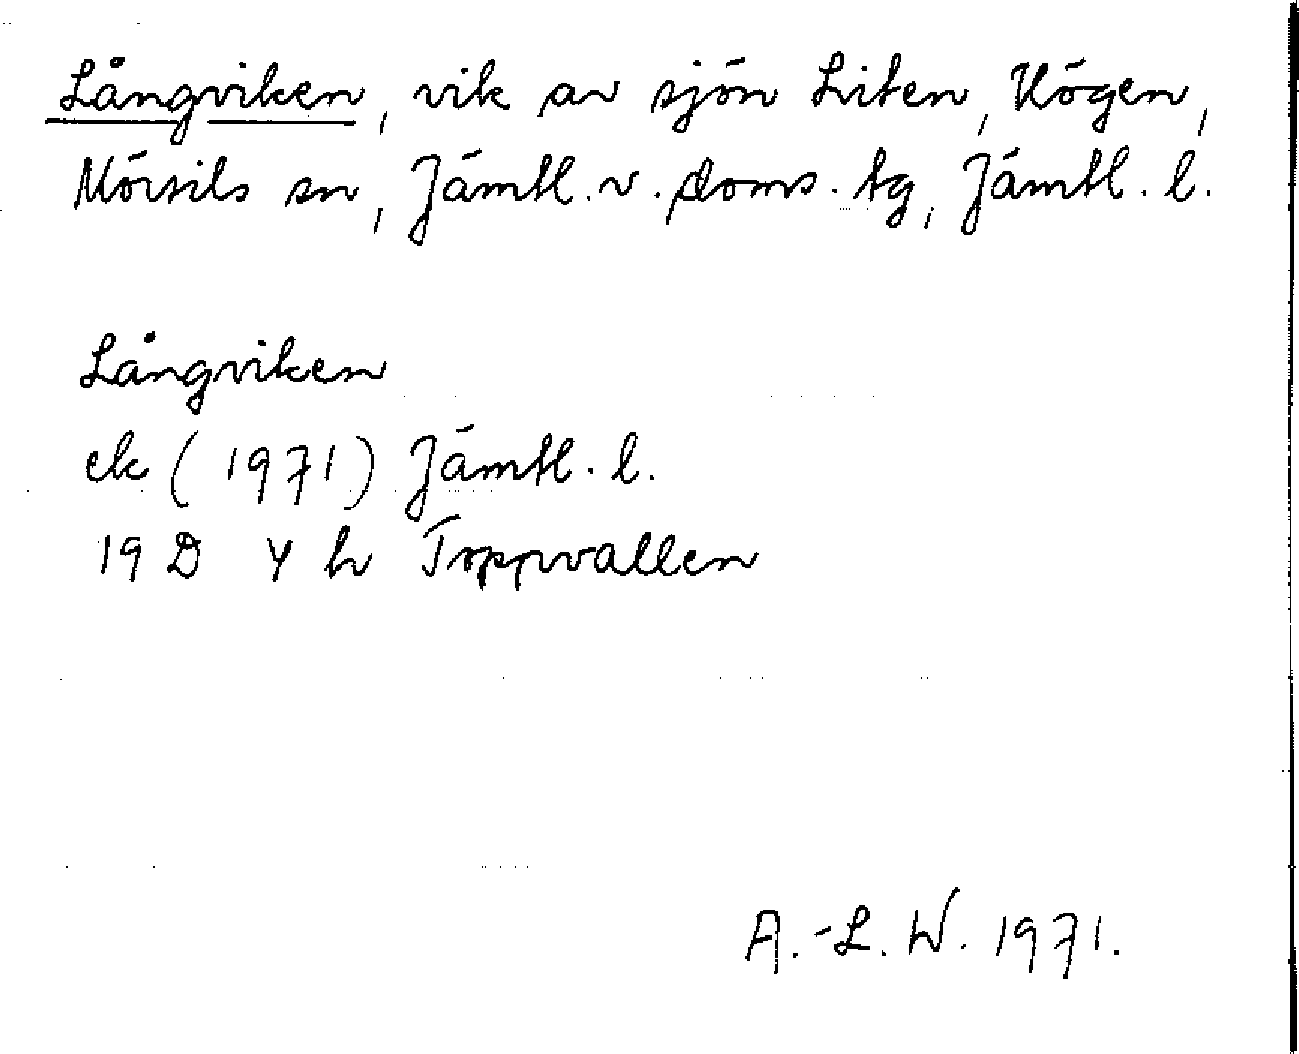 Långviken, vik av sjön Liten, Kögen,
Mörsils sn, Jämtl. v. doms. tg, Jämtl. l.
Långviken
ek (1971) Jämtl. l.
19 D 4 h Toppvallen
A.-L. W. 1971.